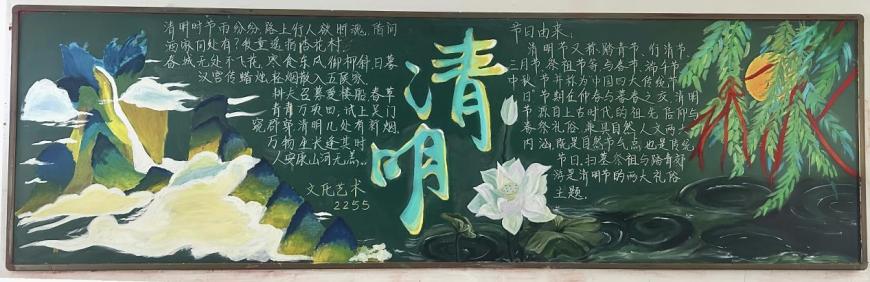 清明时节雨纷纷,路上行人欲断魂,借问
酒家何处有?牧童遥指杏花村。
春城无处不飞花,寒食东风御柳斜,日暮
汉宫传蜡烛,轻烟散入五侯家。
春草
青青万顷田,试上吴门
窥郡郭,清明几处有新烟。
万物生长逢其时
人安康山河无恙。
文化艺术
2255
清明
节日由来:
清明节又称踏青节、行清节、
三月节、祭祖节等,与春节、端午节、
中秋节并称为中国四大传统节
日。节期在仲春与暮春之交,清明
节源自上古时代的祖先信仰与
春祭礼俗,兼具自然人文两大
内涵,既是自然节气点,也是传统
节日,扫墓祭祖与踏青郊
游是清明节的两大礼俗
主题。